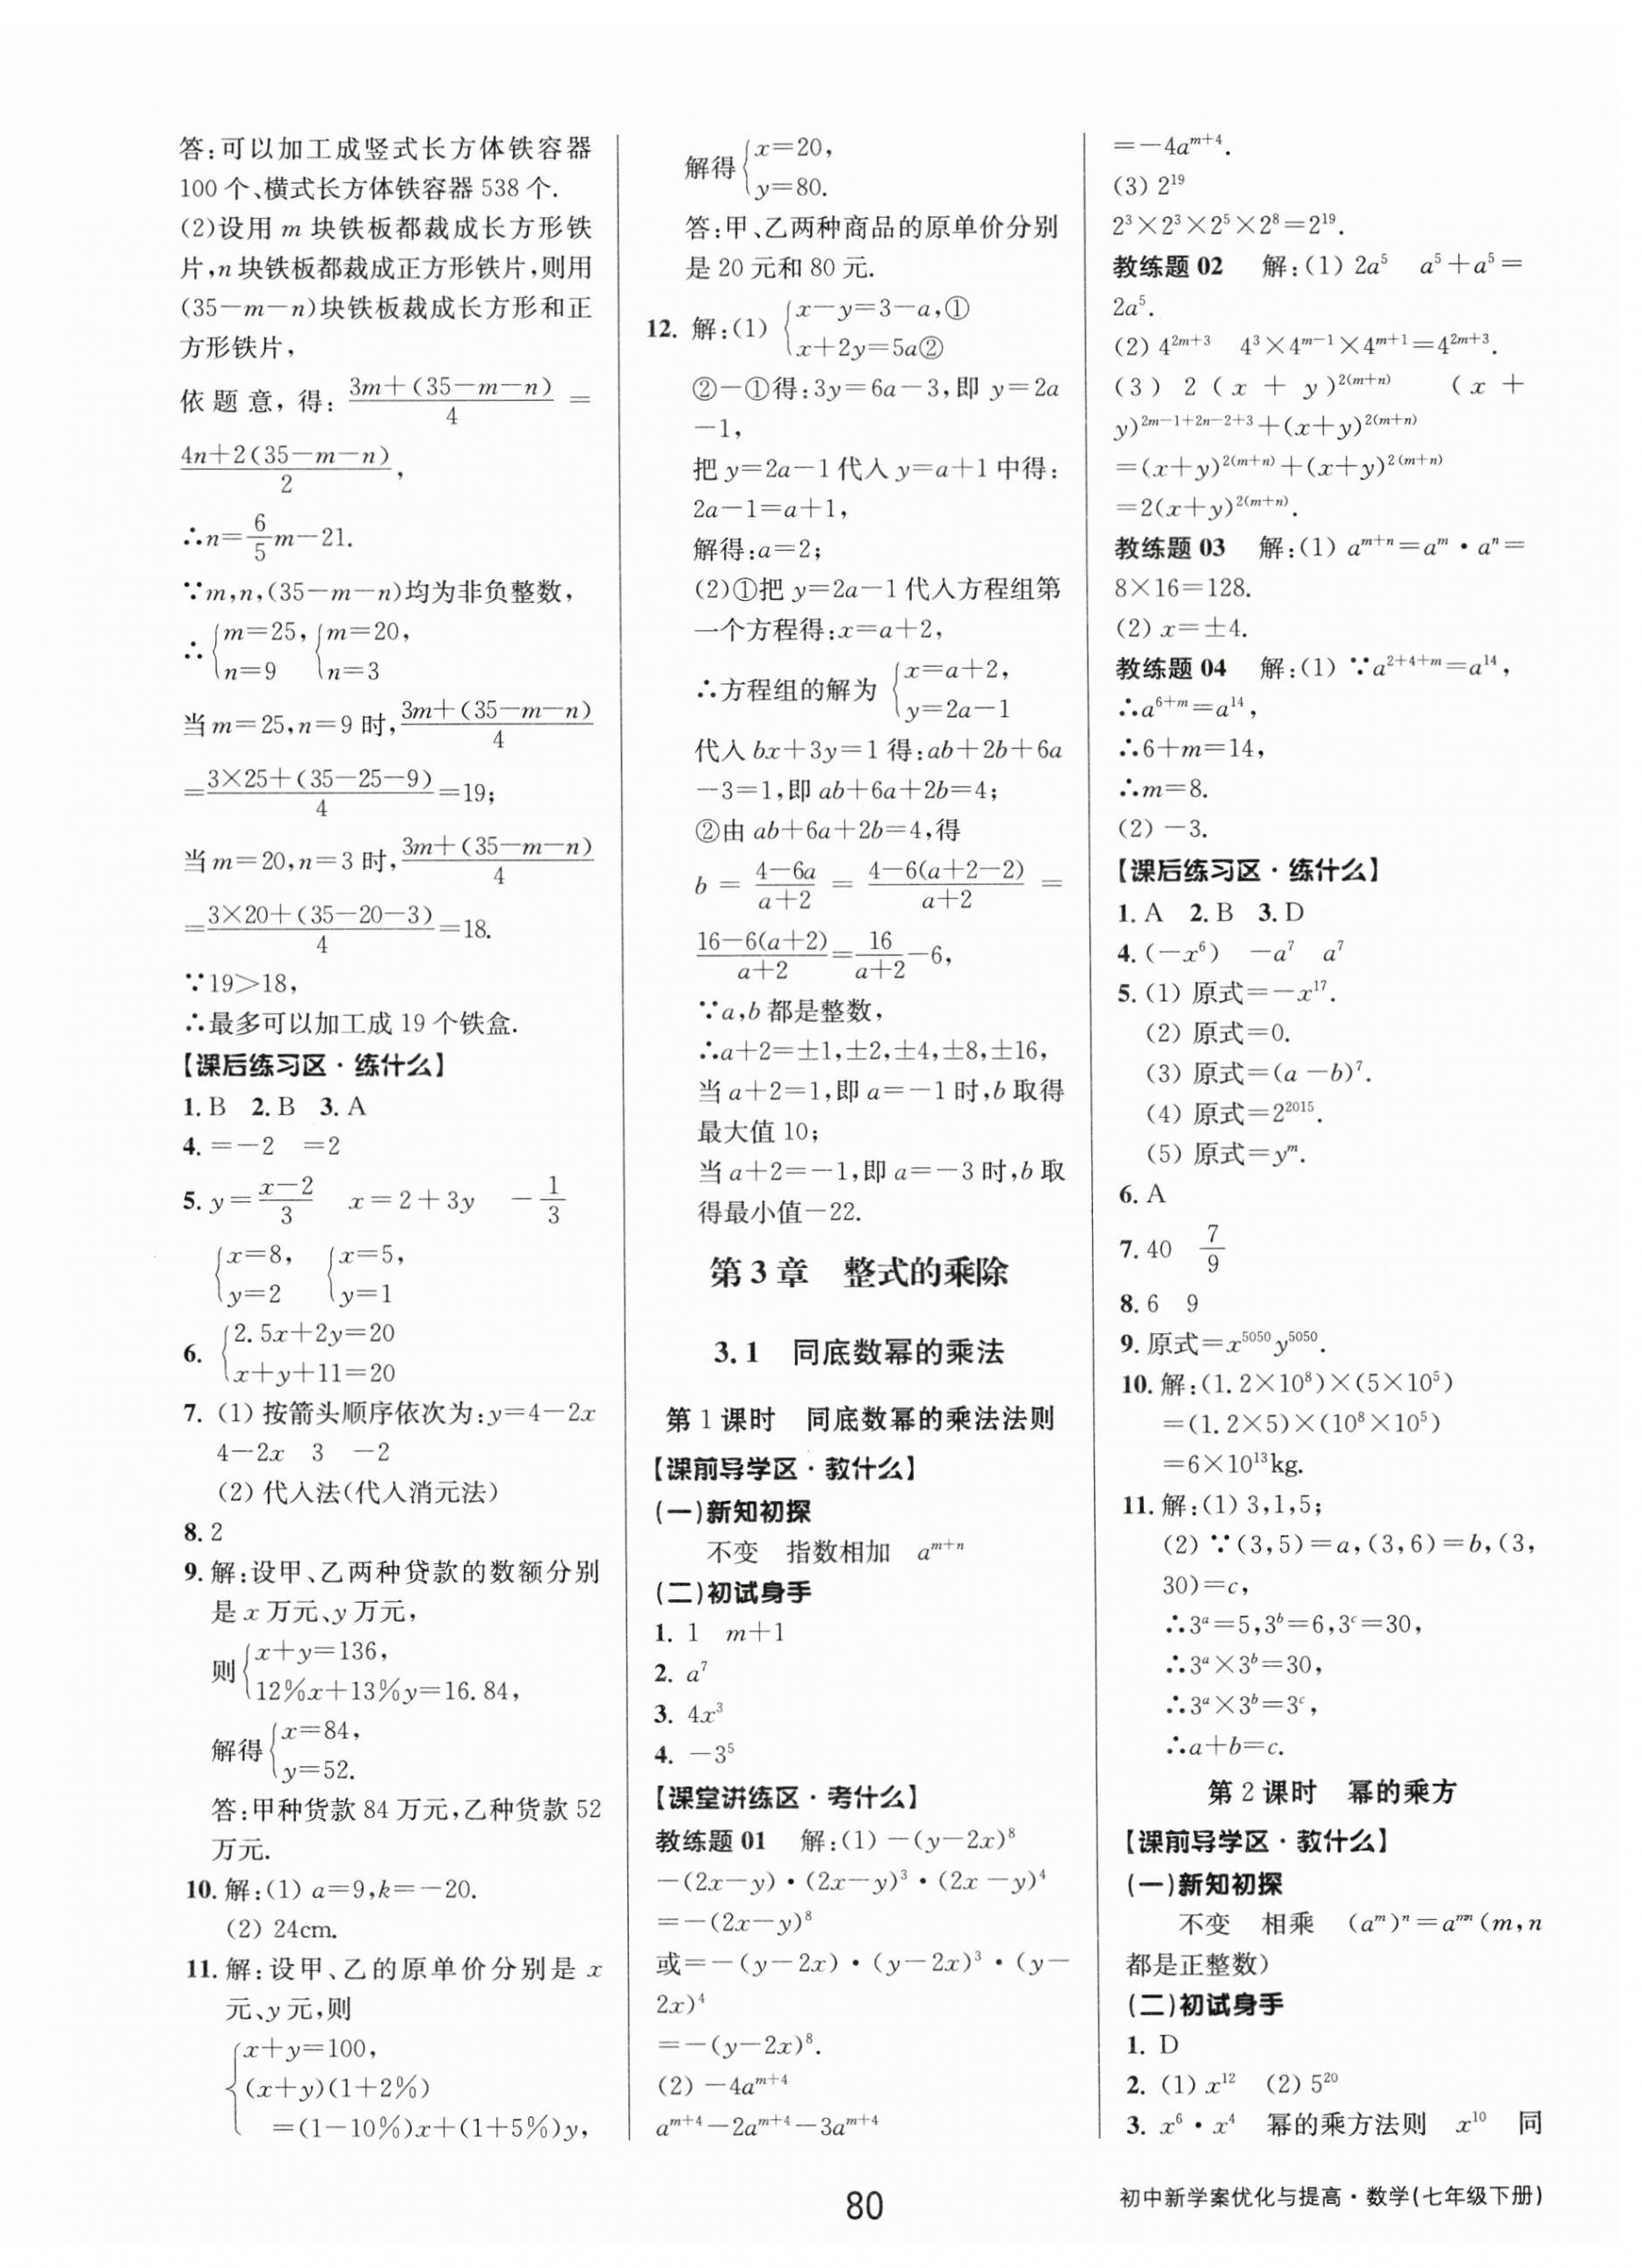 答:可以加工成竖式长方体铁容器
100个、横式长方体铁容器538个.
(2)设用m块铁板都裁成长方形铁
片,n块铁板都裁成正方形铁片,则用
(35-m-n)块铁板裁成长方形和正
方形铁片,
依题意,得:\frac{3m+(35-m-n)}{4}=
\frac{4n+2(35-m-n)}{2},
∴n=\frac{6}{5}m-21.
∵m,n,(35-m-n)均为非负整数,
∴{m=25, {m=20,
n=9 n=3
当m=25,n=9时,\frac{3m+(35-m-n)}{4}
=\frac{3×25+(35-25-9)}{4}=19;
当m=20,n=3时,\frac{3m+(35-m-n)}{4}
=\frac{3×20+(35-20-3)}{4}=18.
∵19>18,
∴最多可以加工成19个铁盒.
【课后练习区·练什么】
1.B 2.B 3.A
4.=-2 =2
5.y=\frac{x-2}{3} x=2+3y -\frac{1}{3}
{x=8, {x=5,
y=2 y=1
6.{2.5x+2y=20
x+y+11=20
7.(1)按箭头顺序依次为:y=4-2x
4-2x 3 -2
(2)代入法(代入消元法)
8.2
9.解:设甲、乙两种贷款的数额分别
是x万元、y万元,
则{x+y=136,
12%x+13%y=16.84,
解得{x=84,
y=52.
答:甲种货款84万元,乙种货款52
万元.
10.解:(1)a=9,k=-20.
(2)24cm.
11.解:设甲、乙的原单价分别是x
元、y元,则
{x+y=100,
(x+y)(1+2%)
=(1-10%)x+(1+5%)y,
解得{x=20,
y=80.
答:甲、乙两种商品的原单价分别
是20元和80元.
12.解:(1){x-y=3-a,①
x+2y=5a②
②-①得:3y=6a-3,即y=2a
-1,
把y=2a-1代入y=a+1中得:
2a-1=a+1,
解得:a=2;
(2)①把y=2a-1代入方程组第
一个方程得:x=a+2,
∴方程组的解为{x=a+2,
y=2a-1
代入bx+3y=1得:ab+2b+6a
-3=1,即ab+6a+2b=4;
②由ab+6a+2b=4,得
b=\frac{4-6a}{a+2}=\frac{4-6(a+2-2)}{a+2}=
\frac{16-6(a+2)}{a+2}=\frac{16}{a+2}-6,
∵a,b都是整数,
∴a+2=±1,±2,±4,±8,±16,
当a+2=1,即a=-1时,b取得
最大值10;
当a+2=-1,即a=-3时,b取
得最小值-22.
第3章 整式的乘除
3.1 同底数幂的乘法
第1课时 同底数幂的乘法法则
【课前导学区·教什么】
(一)新知初探
不变 指数相加 a^{m+n}
(二)初试身手
1. 1 m+1
2. a^7
3. 4x^3
4. -3^5
【课堂讲练区·考什么】
教练题01 解:(1)-(y-2x)^8
-(2x-y)·(2x-y)^3·(2x-y)^4
=-(2x-y)^8
或=-(y-2x)·(y-2x)^3·(y-
2x)^4
=-(y-2x)^8.
(2)-4a^{m+4}
a^{m+4}-2a^{m+4}-3a^{m+4}
=-4a^{m+4}.
(3)2^{19}
2^3×2^3×2^5×2^8=2^{19}.
教练题02 解:(1)2a^5 a^5+a^5=
2a^5.
(2)4^{2m+3} 4^3×4^{m-1}×4^{m+1}=4^{2m+3}.
(3)2(x+y)^{2(m+n)} (x+
y)^{2m-1+2n-2+3}+(x+y)^{2(m+n)}
=(x+y)^{2(m+n)}+(x+y)^{2(m+n)}
=2(x+y)^{2(m+n)}.
教练题03 解:(1)a^{m+n}=a^m·a^n=
8×16=128.
(2)x=±4.
教练题04 解:(1)∵a^{2+4+m}=a^{14},
∴a^{6+m}=a^{14},
∴6+m=14,
∴m=8.
(2)-3.
【课后练习区·练什么】
1.A 2.B 3.D
4.(-x^6) -a^7 a^7
5.(1)原式=-x^{17}.
(2)原式=0.
(3)原式=(a-b)^7.
(4)原式=2^{2015}.
(5)原式=y^m.
6.A
7.40 \frac{7}{9}
8.6 9
9.原式=x^{5050}y^{5050}.
10.解:(1.2×10^8)×(5×10^5)
=(1.2×5)×(10^8×10^5)
=6×10^{13}kg.
11.解:(1)3,1,5;
(2)∵(3,5)=a,(3,6)=b,(3,
30)=c,
∴3^a=5,3^b=6,3^c=30,
∴3^a×3^b=30,
∴3^a×3^b=3^c,
∴a+b=c.
第2课时 幂的乘方
【课前导学区·教什么】
(一)新知初探
不变 相乘 (a^m)^n=a^{mn}(m,n
都是正整数)
(二)初试身手
1. D
2. (1)x^{12} (2)5^{20}
3. x^6·x^4 幂的乘方法则 x^{10} 同
80
初中新学案优化与提高·数学(七年级下册)